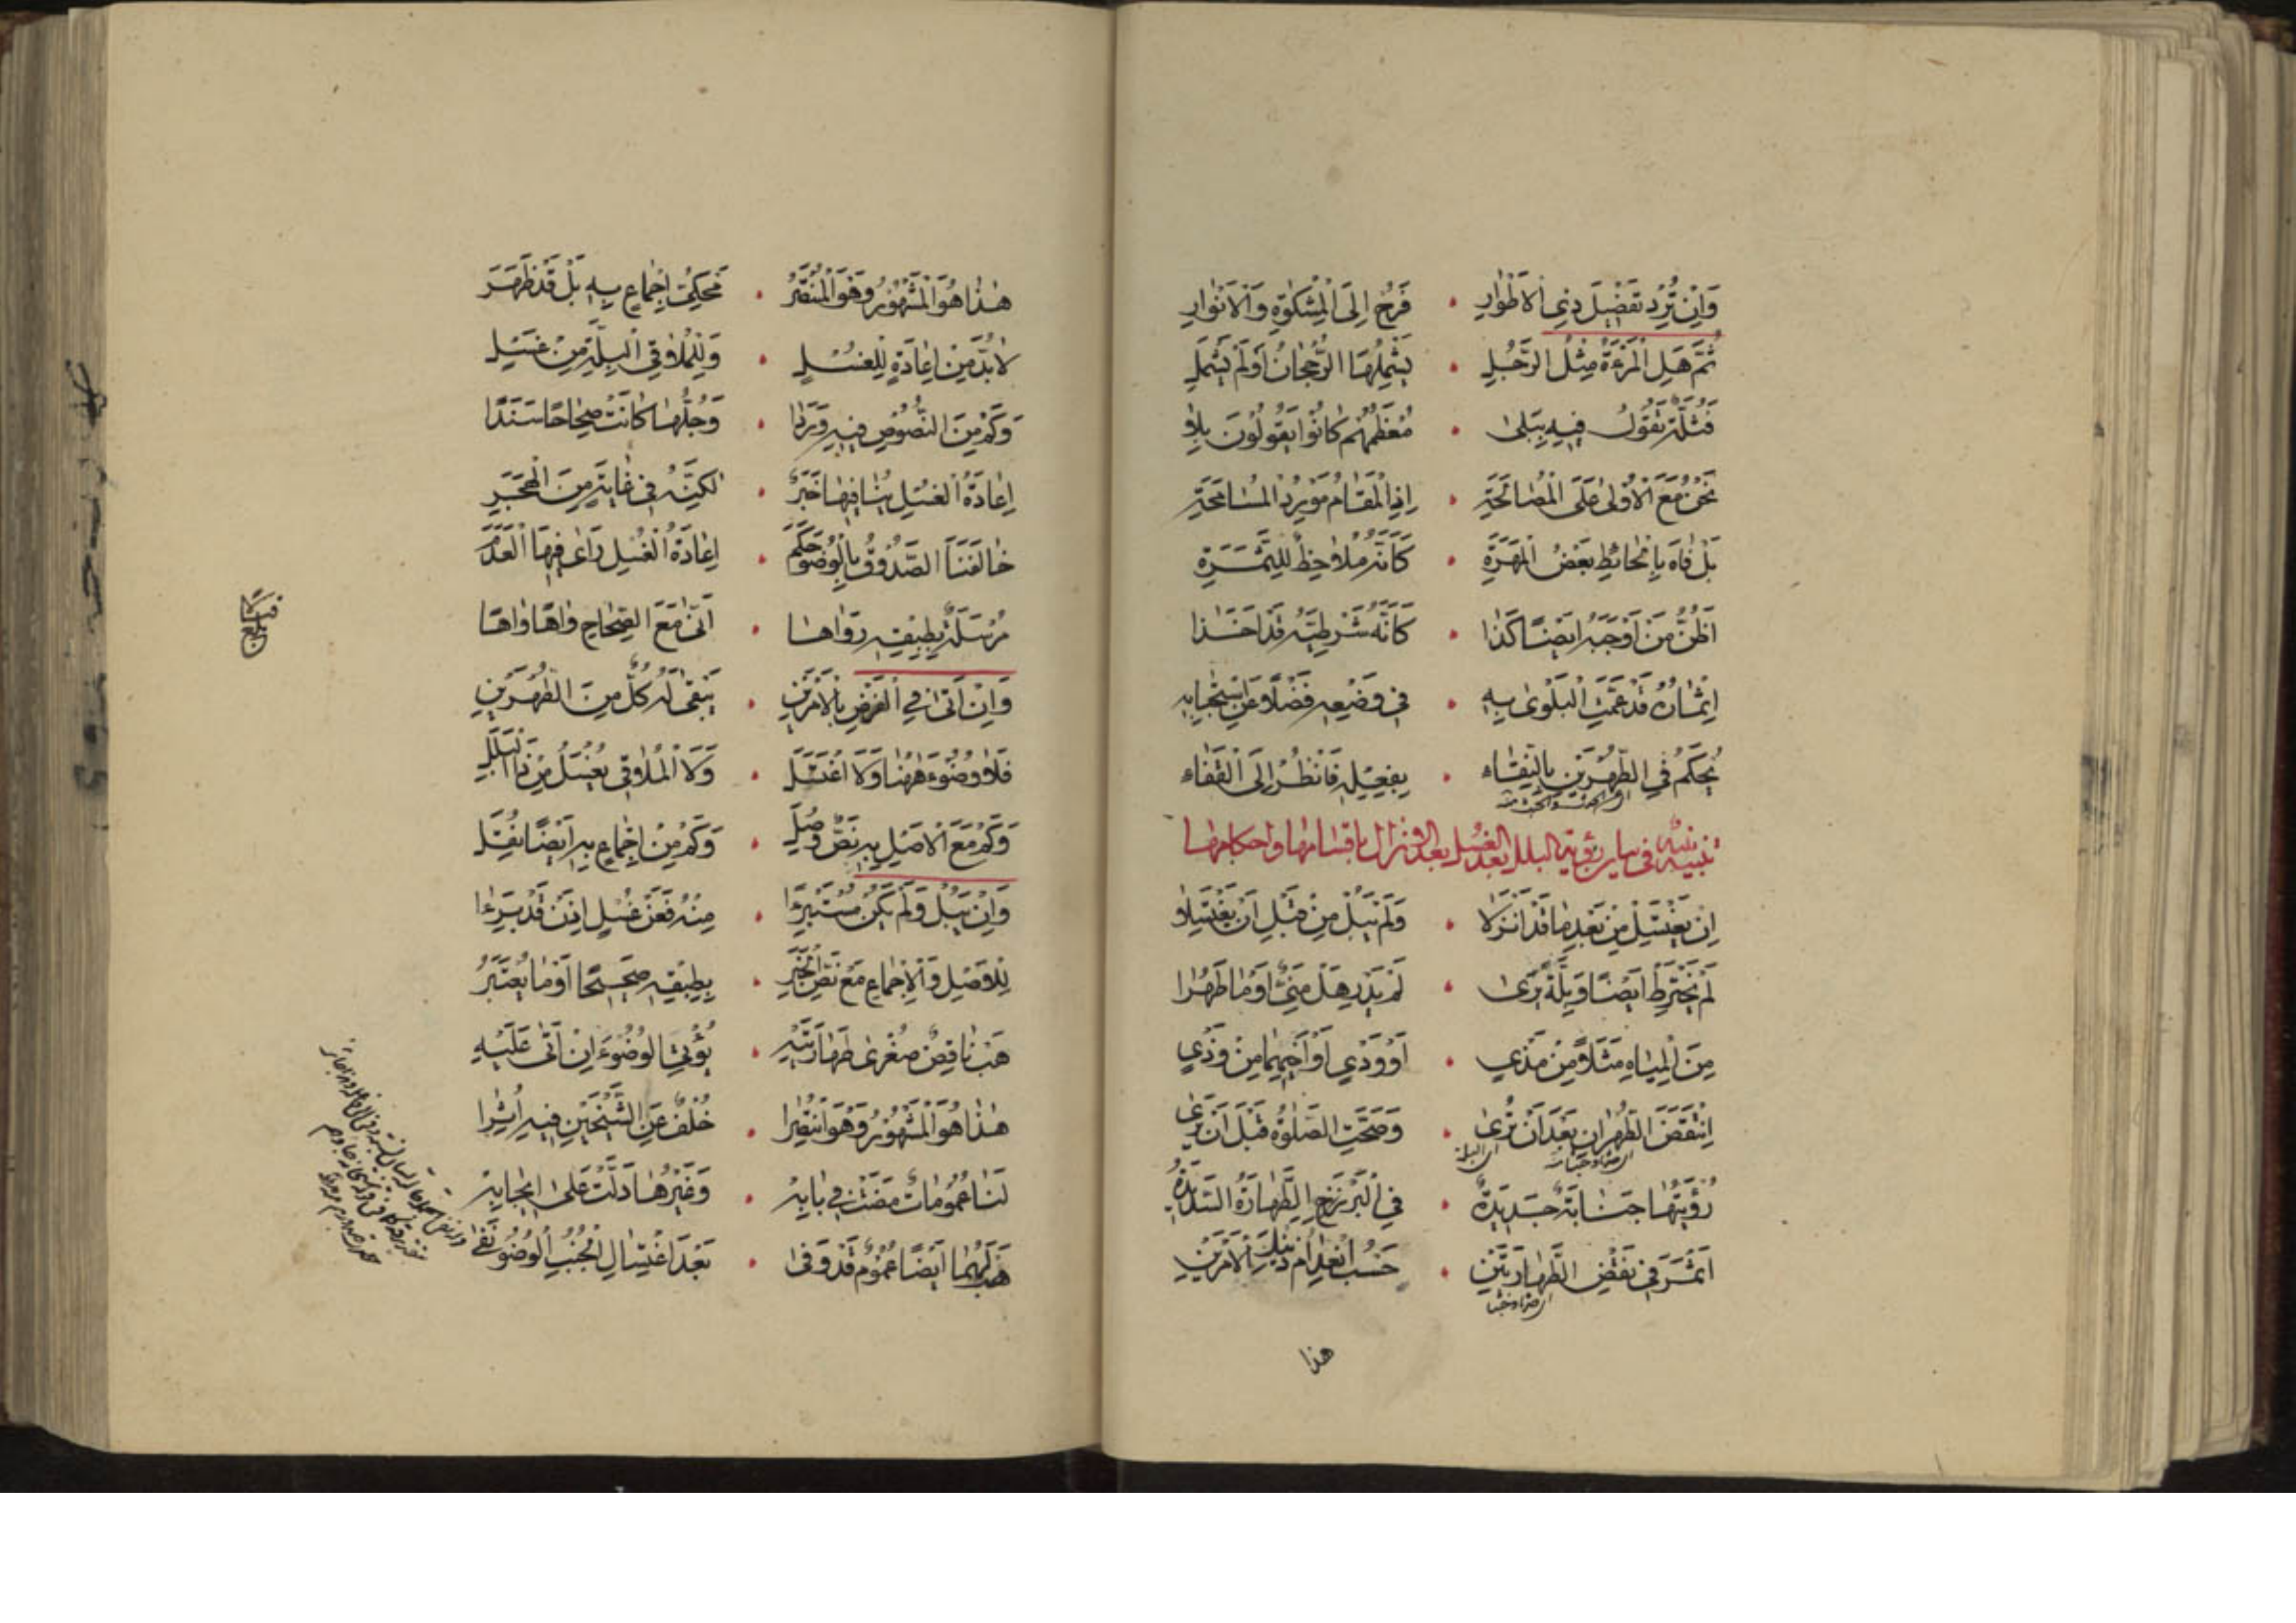 وَاِنْ تُرِدْ تَفْضِيلَ ذِي الْاَطْوَارِ • فَرُحْ اِلَى الْمِشْكٰوةِ وَالْاَنْوَارِ
ثُمَّ هَلِ الْمَرْءَةُ مِثْلُ الرَّجُلِ • يَشْمِلُهَا الرُّجْحَانُ اَوْ لَمْ يَشْمَلِ
فَثُلَّةٌ تَقُولُ فِيهِ بِبَلىٰ • مُعْظَمُهُمْ كَانُوا يَقُولُونَ بِلَا
نَحْنُ مَعَ الْاُولىٰ عَلَى الْمُصَالَحَةِ • اِذِ الْمَقَامُ مَوْرِدُ الْمُسَامَحَةِ
بَلْ فَاهَ بِالْحَائِطِ بَعْضُ الْمَهَرَةِ • كَاَنَّهُ مُلَاحِظٌ لِلثَّمَرَةِ
اَظُنُّ مَنْ اَوْجَبَهُ اَيْضًا كَذَا • كَاَنَّهُ شَرْطِيَّةً قَدْ اَخَذَا
اِثْمَانٌ قَدْ عَمَّتِ الْبَلْوىٰ بِهِ • فِي وَضْعِهِ فَضْلًا عَنِ اسْتِحْبَابِهِ
يُحْكَمُ فِي الطُّهْرَيْنِ بِالنَّقَاءِ • بِفِعْلِهِ فَانْظُرْ اِلَى الْقَفَاءِ
تنبيه نبيه في بيان رؤية البلل بعد الغسل بعد الانزال باقسامها واحكامها
اِنْ يَغْتَسِلْ مِنْ بَعْدِ مَا قَدْ اَنْزَلَا • وَلَمْ يَبُلْ مِنْ قَبْلِ اَنْ يَغْتَسِلَا
لَمْ يَخْتَرِطْ اَيْضًا وَبِلَّةً يَرىٰ • لَمْ يَدْرِ هَلْ مَنِيٌّ اَوْ مَا طَهُرَا
مِنَ الْمِيَاهِ مَثَلًا مِنْ مَذْيِ • اَوْ وَدْيٍ اَوْ اَخِيهِمَا مِنْ وَذْيِ
اِنْتَقَضَ الطُّهْرَانِ بَعْدَ اَنْ يُرىٰ • وَصَحَّتِ الصَّلٰوةُ قَبْلَ اَنْ يَرىٰ
رُؤْيَتُهَا جَنَابَةٌ جَدِيدَةٌ • فِي الْبَرْزَخِ الطَّهَارَةُ السَّدِيدَةُ
اَثَّرَ فِي نَقْضِ الطَّهَارَتَيْنِ • حَسْبُ انْعِدَامِ ذَيْنِكَ الْاَمْرَيْنِ
هذا
هٰذَا هُوَ الْمَشْهُورُ وَهْوَ الْمُنْتَصَرُ • مَحْكِيُّ اِجْمَاعٍ بِهِ بَلْ قَدْ ظَهَرَ
لَا بُدَّ مِنْ اِعَادَةٍ لِلْغُسْلِ • وَلِلْمُلَاقِي الْبِلَّةَ مِنْ غَسْلِ
وَكَمْ مِنَ النُّصُوصِ فِيهِ وَرَدَا • وَجُلُّهَا كَانَتْ صِحَاحًا سَنَدًا
اِعَادَةُ الْغُسْلِ يُنَافِيهَا خَبَرٌ • لٰكِنَّهُ فِي غَايَةٍ مِنَ الْهَجَرِ
خَالَفَنَا الصَّدُوقُ بِالْوُضُو حَكَمَ • اِعَادَةُ الْغُسْلِ رَاىٰ فِيهَا الْعَدَمَ
مُرْسَلَةٌ بِطِبْقِهِ رَوَاهَا • اَنّىٰ مَعَ الصِّحَاحِ وَاهًا وَاهًا
وَاِنْ اَتىٰ فِي الْفَرْضِ بِالْاَمْرَيْنِ • يَبْقىٰ لَهُ كُلٌّ مِنَ الطُّهْرَيْنِ
فَلَا وُضُوءَ هٰهُنَا وَلَا اغْتَسَلَ • وَلَا الْمُلَاقِي يُغْسَلُ مِنْ ذَا الْبَلَلِ
وَكَمْ مَعَ الْاَصْلِ بِهِ نَصٌّ وُصِلَ • وَكَمْ مِنِ اِجْمَاعٍ بِهِ اَيْضًا نُقِلَ
وَاِنْ يَبُلْ وَلَمْ يَكُنْ مُسْتَبْرِءًا • مِنْهُ فَعَنْ غُسْلٍ اِذَنْ قَدْ بَرِءَا
لِلْاَصْلِ وَالْاِجْمَاعِ مَعْ نَصِّ الْخَبَرِ • بِطِبْقِهِ صَحِيحًا اَوْ مَا يُعْتَبَرُ
هَبْ نَاقِصٌ صُغْرىٰ طَهَارَتَيْهِ • يُؤْتِي الْوُضُوءَ اِنْ اَتىٰ عَلَيْهِ
هٰذَا هُوَ الْمَشْهُورُ وَهْوَ انْتُصِرَا • خُلْفٌ عَنِ الشَّيْخَيْنِ فِيهِ اُثِرَا
لَنَا عُمُومَاتٌ مَضَتْ فِي بَابِهِ • وَغَيْرُهَا دَلَّتْ عَلىٰ اِيجَابِهِ
هَبْ لَهُمَا اَيْضًا عُمُومٌ قَدْ وَفىٰ • بَعْدَ اغْتِسَالِ الْجُنُبِ الْوُضُو نَفىٰ